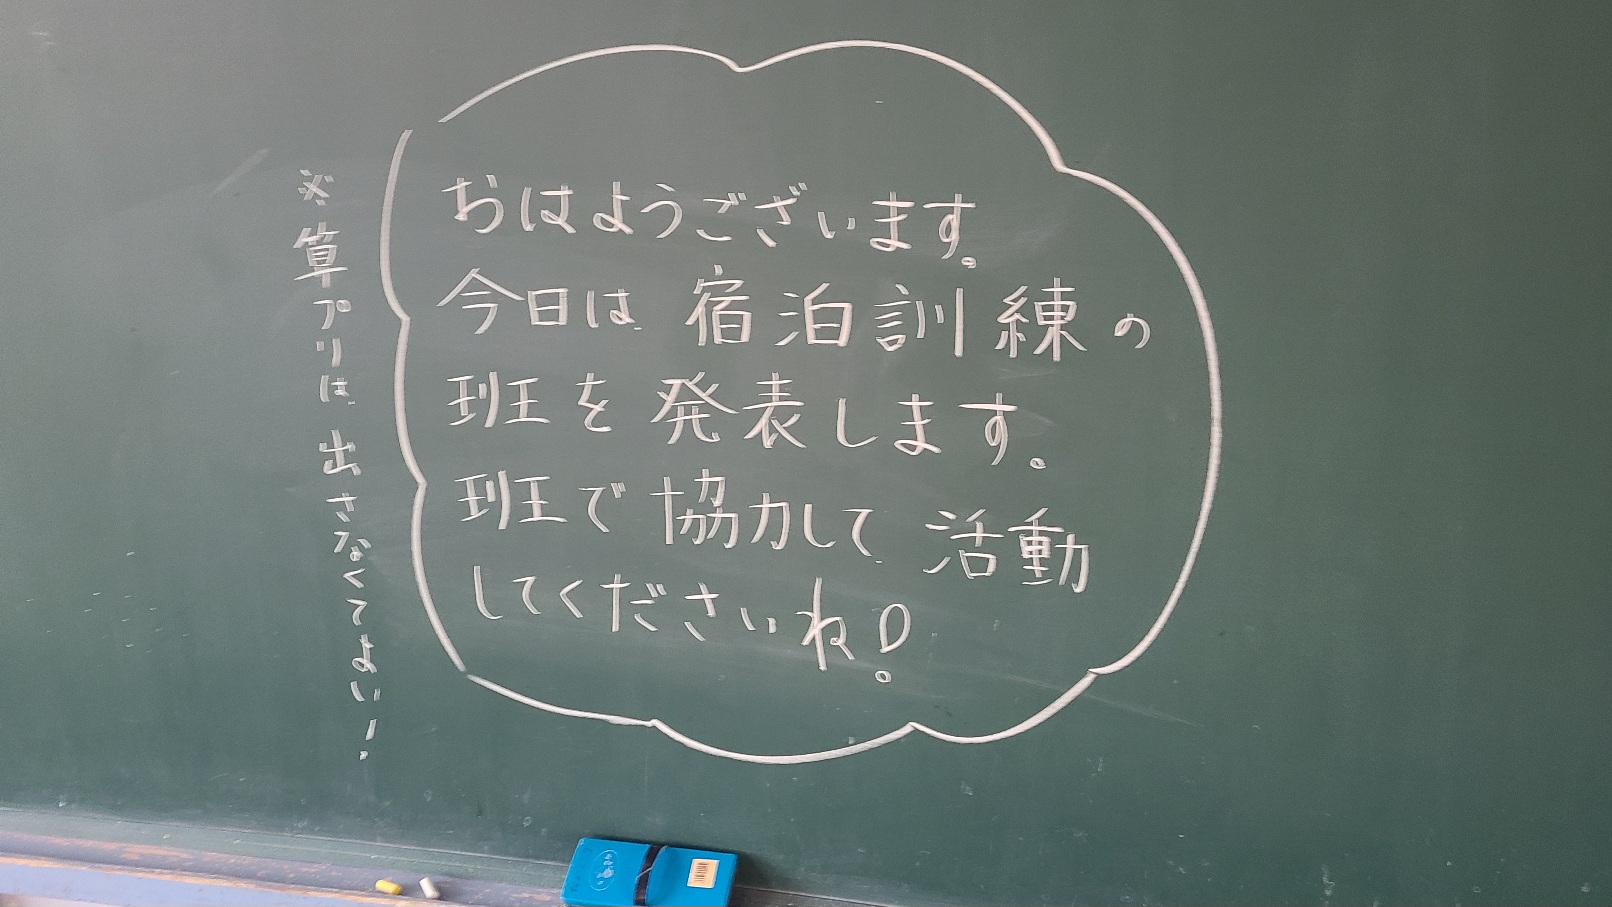 おはようございます。
今日は宿泊訓練の
班を発表します。
班で協力して活動
してくださいね!
※算プリは出さなくてよい!